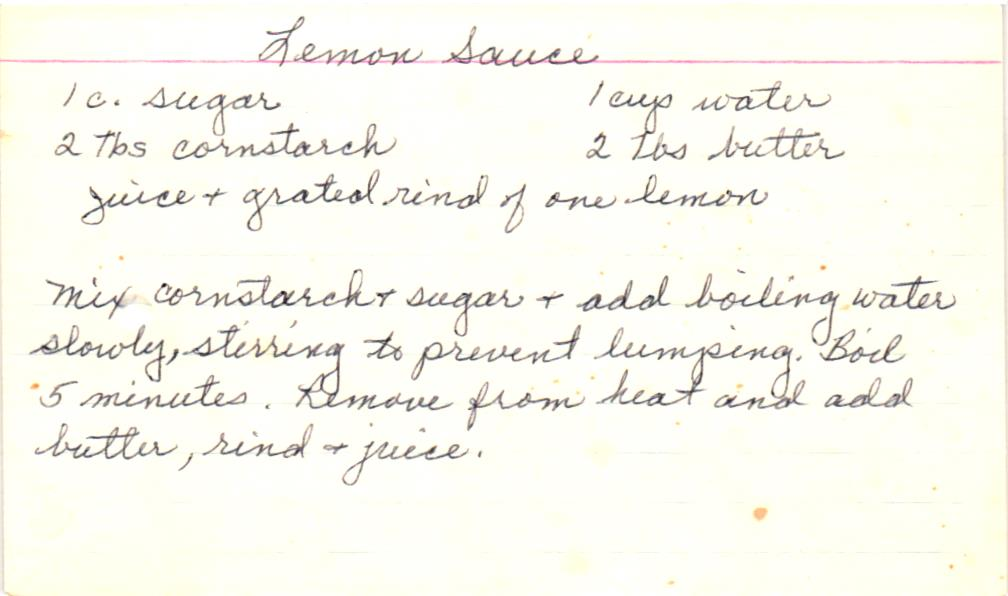 Lemon Sauce
1 c. sugar 1 cup water
2 Tbs cornstarch 2 Tbs butter
juice + grated rind of one lemon
Mix cornstarch + sugar + add boiling water
slowly, stirring to prevent lumping. Boil
5 minutes. Remove from heat and add
butter, rind + juice.